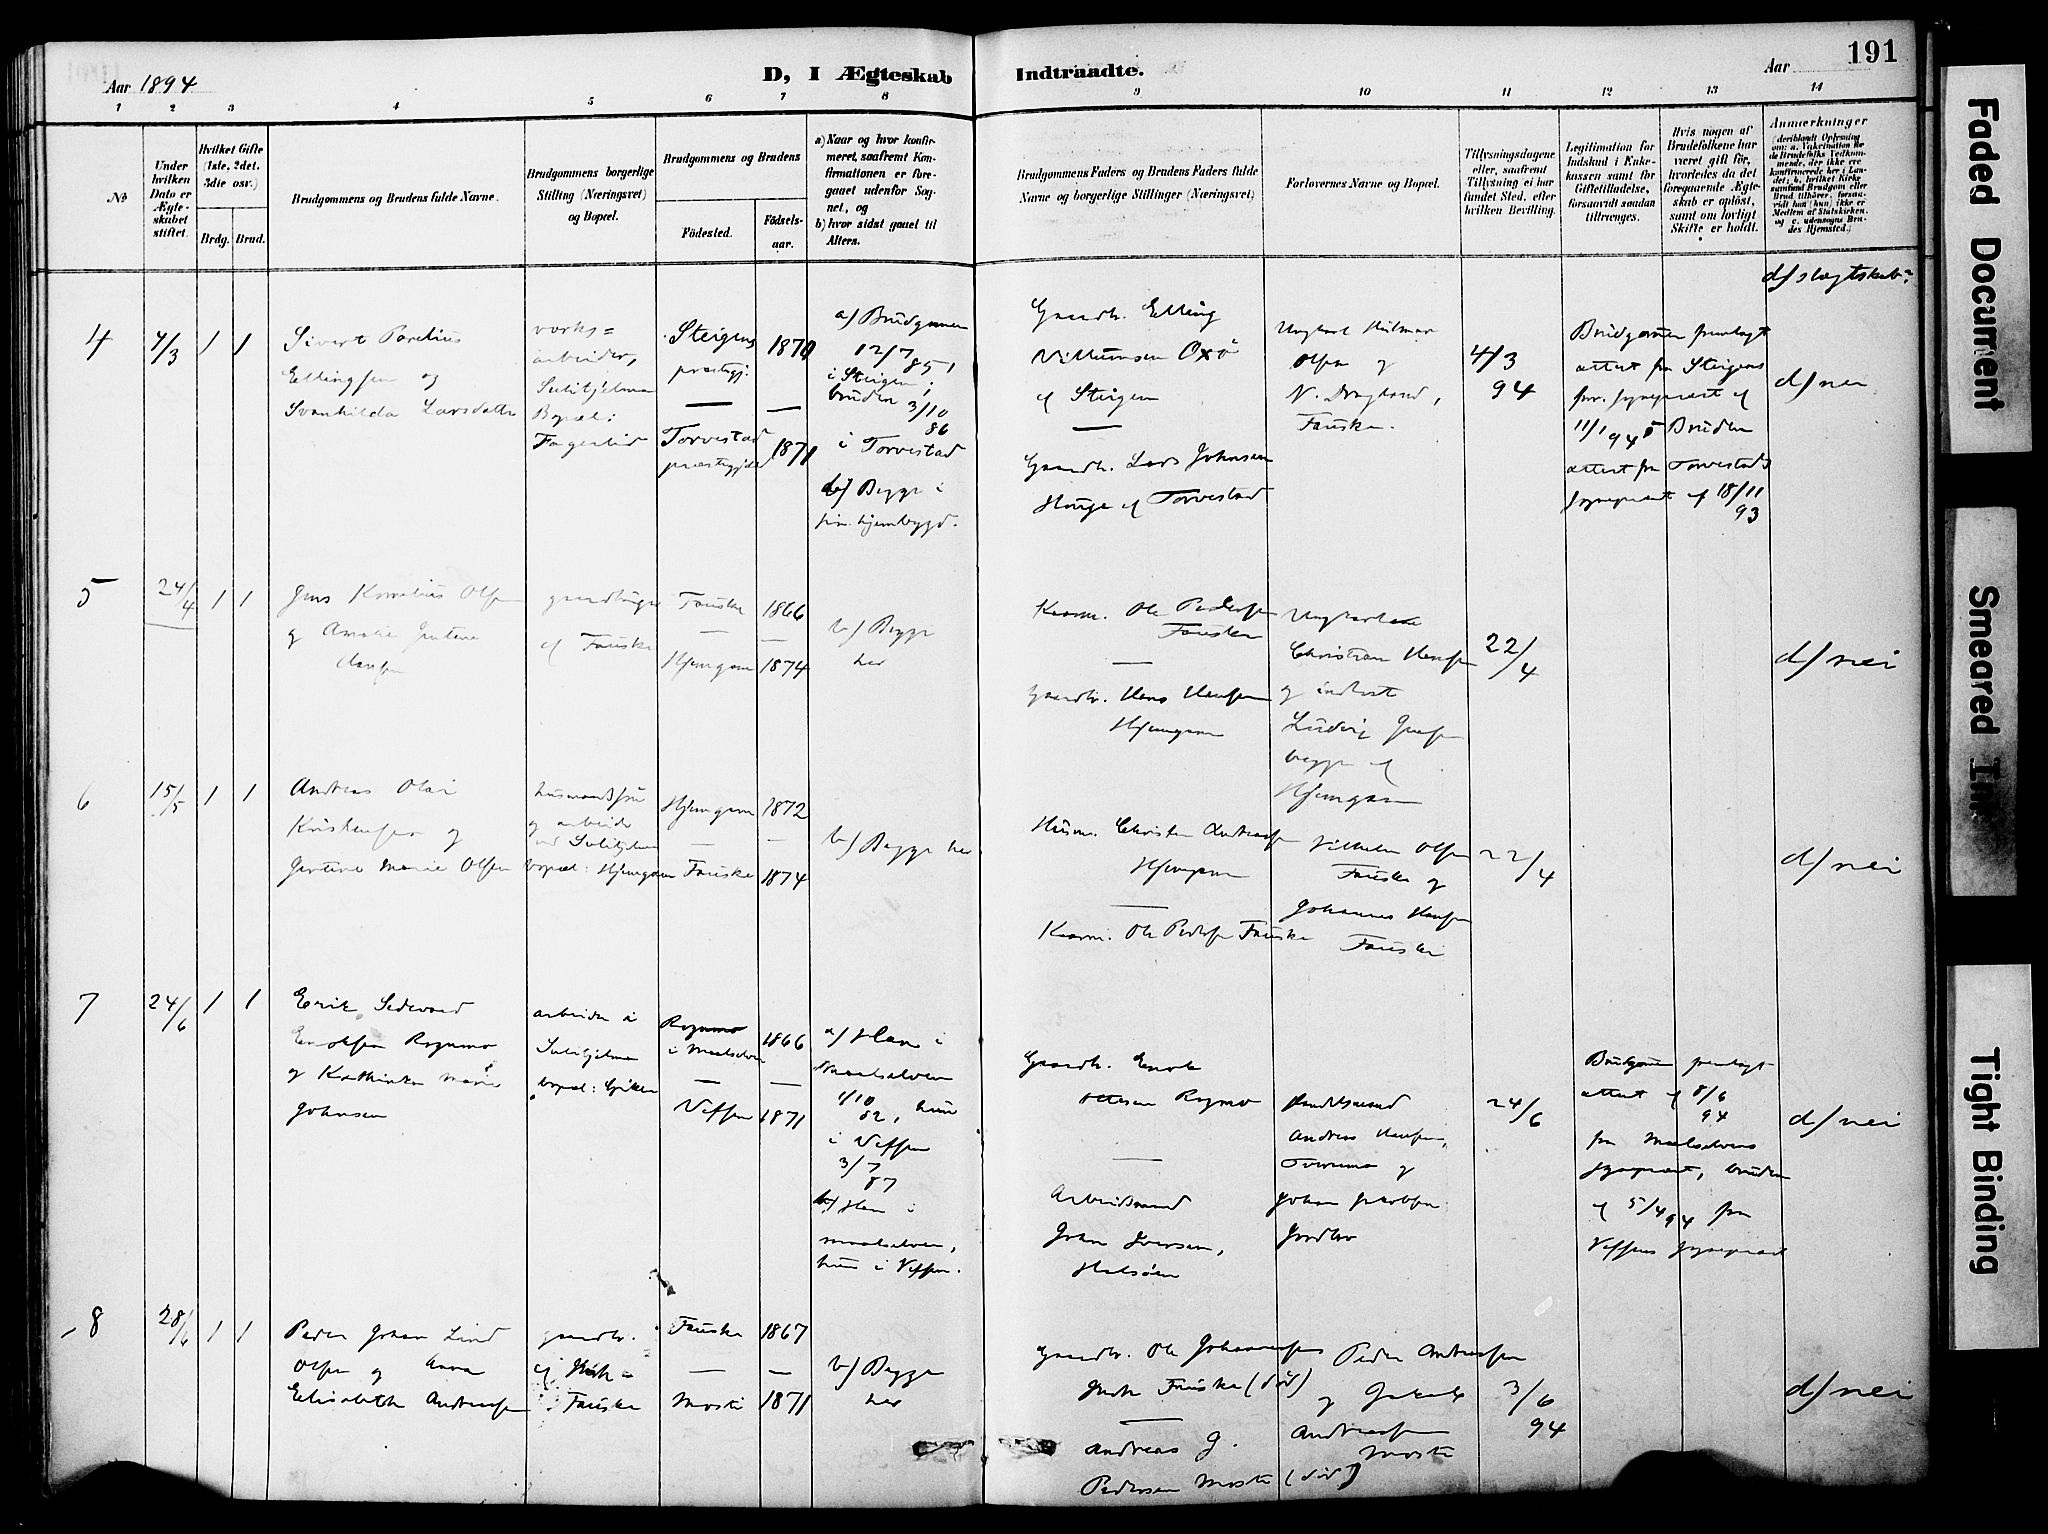 191
Aar 1894
D, I Ægteskab Indtraadte.
Aar
1 2 3 4 5 6 7 8 9 10 11 12 13 14
№
Under hvilken Dato er Ægteskabet stiftet.
Hvilket Gifte (1ste, 2det, 3die osv.)
Brdg. Brud.
Brudgommens og Brudens fulde Navne.
Brudgommens borgerlige Stilling (Næringsvei) og Bopæl.
Brudgommens og Brudens
Fødested.
Fødselsaar.
a) Naar og hvor konfirmeret, saafremt Konfirmationen er foregaaet udenfor Sognet, og
b) hvor sidst gaaet til Alters.
Brudgommens Faders og Brudens Faders fulde Navne og borgerlige Stillinger (Næringsvei)
Forlovernes Navne og Bopæl.
Tillysningsdagene eller, saafremt Tillysning ei har fundet Sted, efter hvilken Bevilling.
Legitimation for Indskud i Enkekassen samt for Giftetilladelse, forsaavidt saadan tiltrænges.
Hvis nogen af Brudefolkene har været gift før, hvorledes da det foregaaende Ægteskab er opløst, samt om lovligt Skifte er holdt.
Anmærkninger
(deriblandt Oplysning om: a. Vakcination for de Brudefolks Vedkommende, der ikke ere konfirmerede her i Landet; b. hvilket Kirkesamfund Brudgom eller Brud tilhører, forsavidt han (hun) ikke er Medlem af Statskirken, og c. udensogns Brudes Hjemsted.)
d/ slægtskab?
4
4/3
1 1
Sivert Parelius
Ellingsen og
Svanhilda Larsdatter
værks=
arbeider,
Sulitjelma
Bopæl:
Fagerlid
Steigens
præstegj:
—
Torvestad
præstegjeld
1870
—
1871
a/ Brudgommen
12/7 85
i Steigen;
bruden 3/10
86
i Torvestad
b/ Begge i
sin hjembygd.
Gaardb. Elling
Villumsen Oxö
af Steigen
—
Gaardb. Lars Johnsen
Hauge af Torvestad
Ungkarl Hilmar
Olsen og
N. Dragland,
Fauske.
4/3
94
Brudgommen fremlagt
attest fra Steigens
sogneprest af
11/1 94 & Bruden
attest fra Torvestads
sogneprest af 18/11
93
d/ nei
5
24/4
1 1
Jens Kornelius Olsen
og Amalie Gurine
Hansen
gaardbruger
af Fauske
Fauske
—
Hjemgam
1866
—
1874
b/ Begge
her
Kaarm. Ole Pedersen
Fauske
—
Gaardbr. Hans Hansen
Hjemgam
Ungkarlene
Christian Hansen
og inderst
Ludvig Jensen
begge af
Hjemgam
22/4
d/ nei
6
15/5
1 1
Andreas Olai
Kristensen og
Gurine Marie Olsen
husmandssøn
og arbeider
ved Sulitjelma
bopæl: Hjemgam
Hjemgam
—
Fauske
1872
—
1874
b/ Begge her
Husm. Christen Andreassen
Hjemgam
—
Kaarm. Ole Pedersen Fauske
Vilhelm Olsen
Fauske og
Johannes Hansen
Fauske
22/4
d/ nei
7
24/6
1 1
Erik Sedevard
Enoksen Rognmo
og Kathinka Marie
Johnsen
arbeider i
Sulitjelma
bopæl: Giken
Rognmo
i Maalselven
—
Vefsen
1866
—
1871
a/ Han i
Maalselven
1/10
82, hun
i Vefsen
3/7
87
b/ Han i
Maalselven,
hun i Vefsen.
Gaardb. Enok
Ottesen Rognmo
—
Arbeidsmand
Johan Iversen,
Halsøen
Handelsmand
Andreas Hansen,
Tveramo og
Johan Jakobsen
Jordbro
24/6
Brudgommen fremlagt
attest af 8/6
94
fra Maalselvens
sogneprest, bruden
af 5/4 94 fra
Vefsens sogneprest
d/ nei
8
28/6
1 1
Peder Johan Lind
Olsen og Anna
Elisabeth Andreassen
gaardb.
af Indre
Fauske
Fauske
—
Moste
1867
—
1871
b/ Begge
her
Gaardb. Ole Johannessen
Indre Fauske (død)
—
Andreas J.
Pedersen Moste (død)
Peder Andreassen
og Jakob
Andreassen
Moste
3/6
94
d/ nei
Faded Document
Smeared Ink
Tight Binding